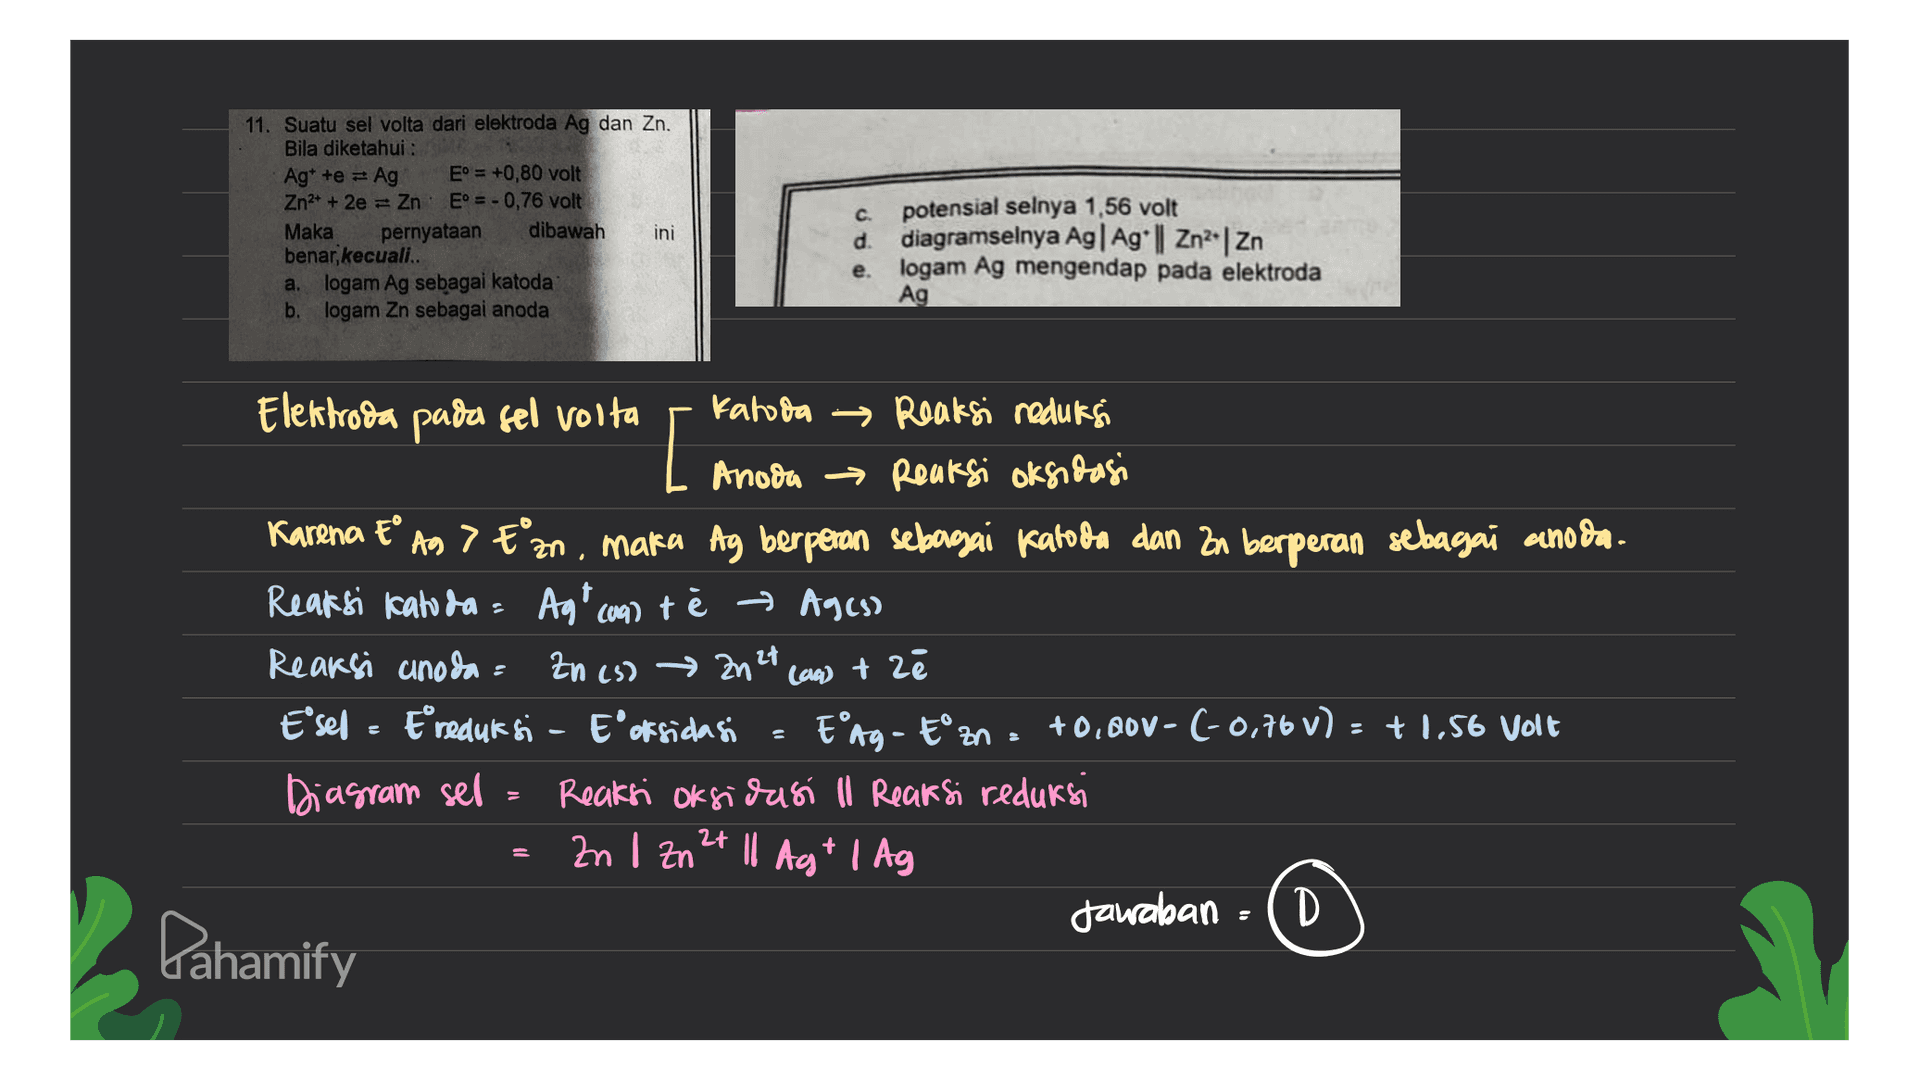 11. Suatu sel volta dari elektroda Ag dan Zn.
Bila diketahui :
Ag⁺ +e ⇌ Ag E⁰ = +0,80 volt
Zn²⁺ + 2e ⇌ Zn E⁰ = - 0,76 volt
Maka pernyataan dibawah ini
benar,kecuali..
a. logam Ag sebagai katoda
b. logam Zn sebagai anoda
c. potensial selnya 1,56 volt
d. diagramselnya Ag | Ag⁺ || Zn²⁺ | Zn
e. logam Ag mengendap pada elektroda
Ag
Elektroda pada sel volta Katoda → Reaksi reduksi
Anoda → Reaksi oksidasi
Karena E° Ag > E° Zn, maka Ag berperan sebagai katoda dan Zn berperan sebagai anoda.
Reaksi katoda = Ag⁺ (aq) + ē → Ag(s)
Reaksi anoda = Zn (s) → Zn²⁺ (aq) + 2ē
E°sel = E°reduksi - E°oksidasi = E°Ag - E°Zn = +0,80V - (-0,76 V) = + 1,56 Volt
Diagram sel = Reaksi oksidasi || Reaksi reduksi
= Zn | Zn²⁺ || Ag⁺ | Ag
Jawaban = D
Pahamify